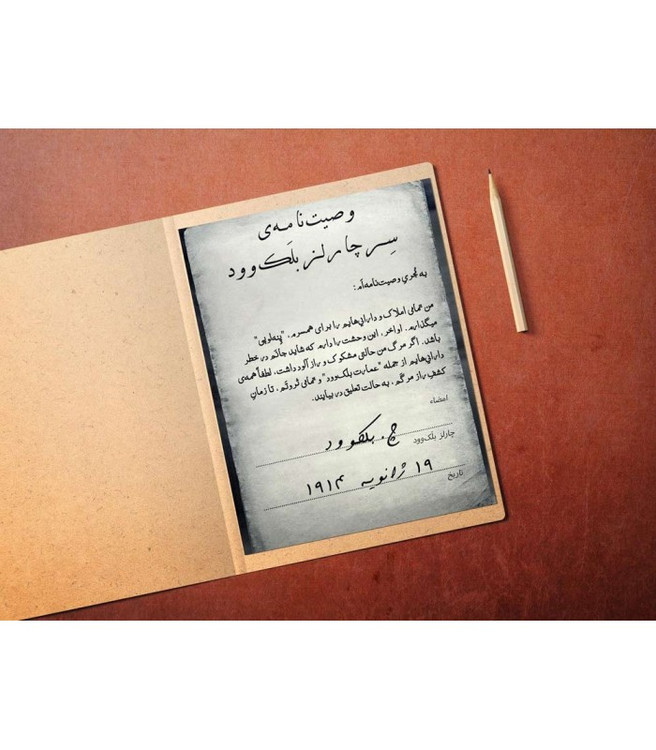 وصیت‌نامه‌ی
سِر چارلز بلَک‌وود
به مُجریِ وصیت‌نامه‌اَم:
من تمامی املاک و دارایی‌هایم را برای همسرم، "پنه‌لوپی"
میگذارم. اواخر، این وحشت را دارم که شاید جانَم در خطر
باشد. اگر مرگِ من حالتی مشکوک و رازآلود داشت، لطفاً همه‌ی
دارایی‌هایم از جمله "عمارت بلَک‌وود" و تمامی ثروتَم، تا زمانِ
کشفِ رازِ مرگَم، به حالت تعلیق در بیایند.
امضاء
چ. بلکوود
چارلز بلَک‌وود
۱۹ ژانویه ۱۹۱۴
تاریخ